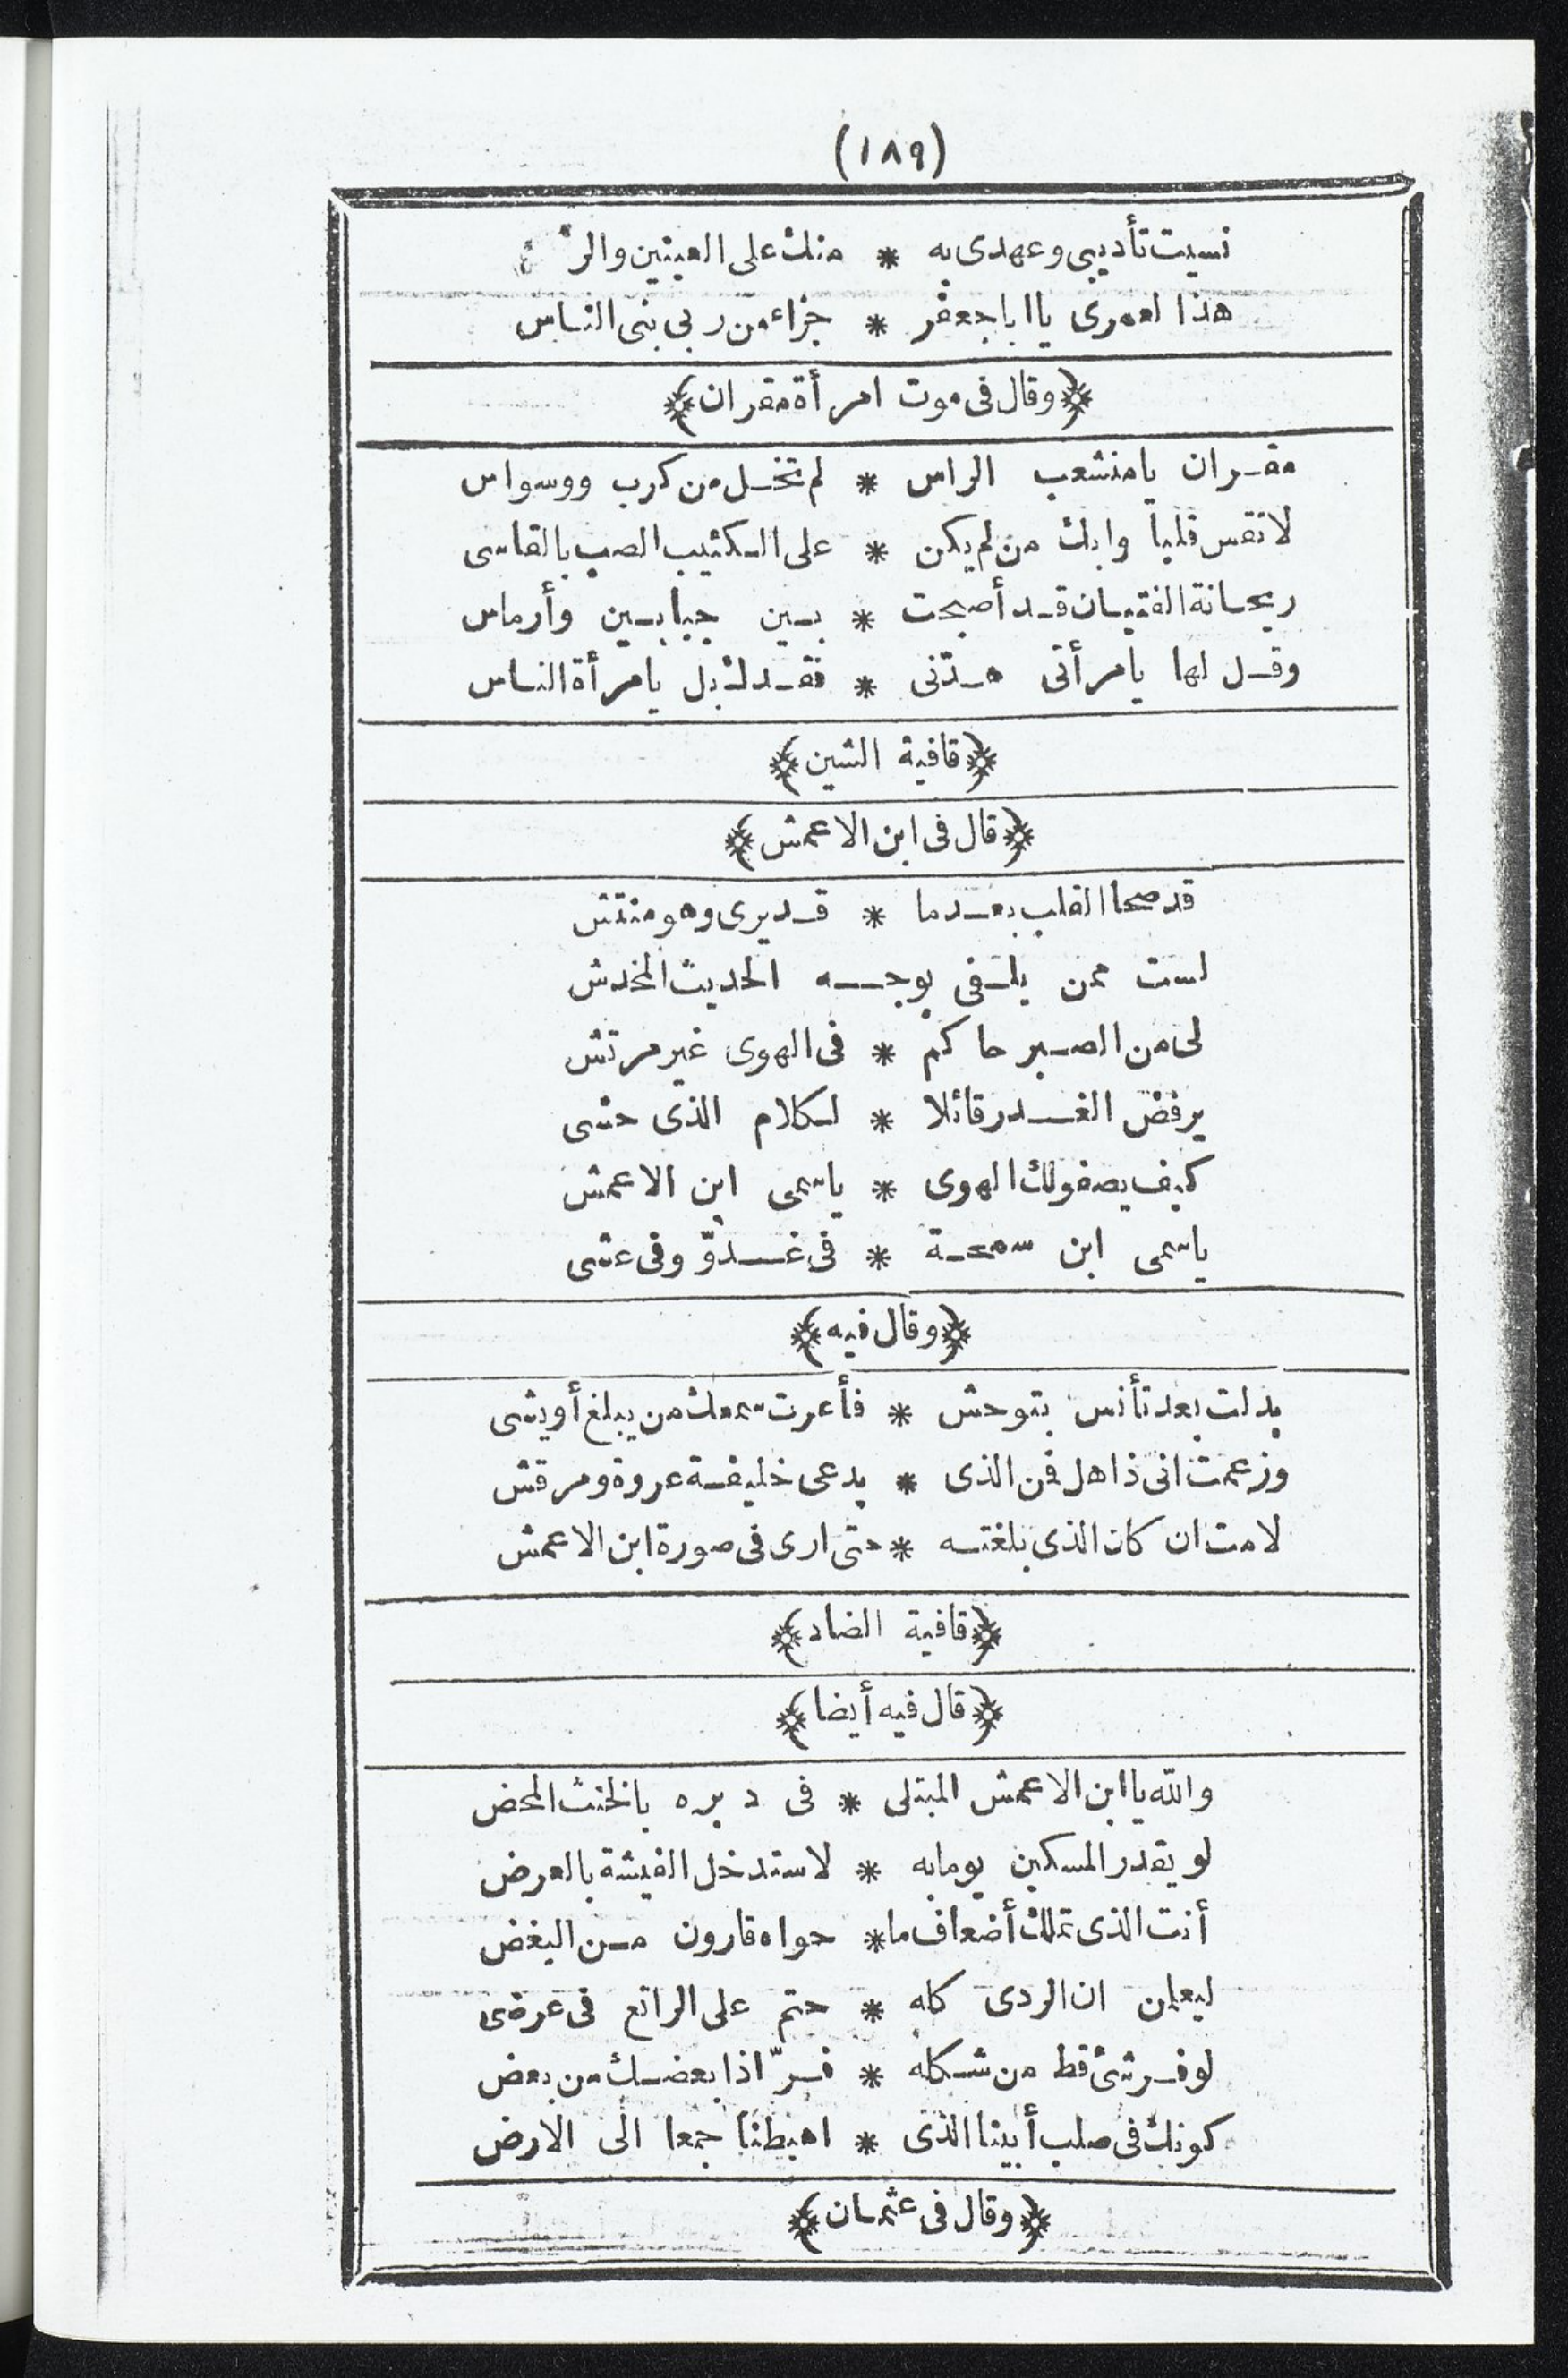 (١٨٩)
نسيت تأديبى وعهدى به * منك على العينين و
هذا لعمرى يا ابا جعفر * جزاء من ربى بنى الناس
﴿وقال فى موت امرأة مقران﴾
مقران يا منشعب الراس * لم تخل من كرب ووسواس
لا تقس قلبا وابك من لم يكن * على الكئيب الصب بالقاسى
ريحانة الفتيان قد أصبحت * بين جبابين وأرماس
وقل لها يا مرأتى هدّنى * فقدك بل يا مرأة الناس
﴿قافية الشين﴾
﴿قال فى ابن الاعمش﴾
قد صحا القلب بعدما * قد يرى وهو منتش
لست ممن يلفى بوجه الحديث المخدش
لى من الصبر حاكم * فى الهوى غير مرتش
يرفض الغدر قائلا * لكلام الذى حشى
كيف يصفو لك الهوى * ياسمى ابن الاعمش
ياسمى ابن سمحة * فى غدوّ وفى عشى
﴿وقال فيه﴾
بدلت بعد تأنس بتوحش * فأعرت سمعك من يبلغ أو يشى
وزعمت انى ذاهل فمن الذى * يدعى خليفة عروة ومرقش
لا مت ان كان الذى بلغته * حتى ارى فى صورة ابن الاعمش
﴿قافية الضاد﴾
﴿قال فيه أيضا﴾
والله يا ابن الاعمش المبتلى * فى دبره بالخنث المحض
لو يقدر المسكين يوما به * لاستدخل الفيشة بالعرض
أنت الذى تملك أضعاف ما * حواه قارون من البغض
ليعلمن ان الردى كله * حتم على الراتع فى عرضى
لو فر شئ قط من شكله * فرّ اذا بعضك من بعض
كونك فى صلب أبينا الذى * اهبطنا جمعا الى الارض
﴿وقال فى عثمان﴾